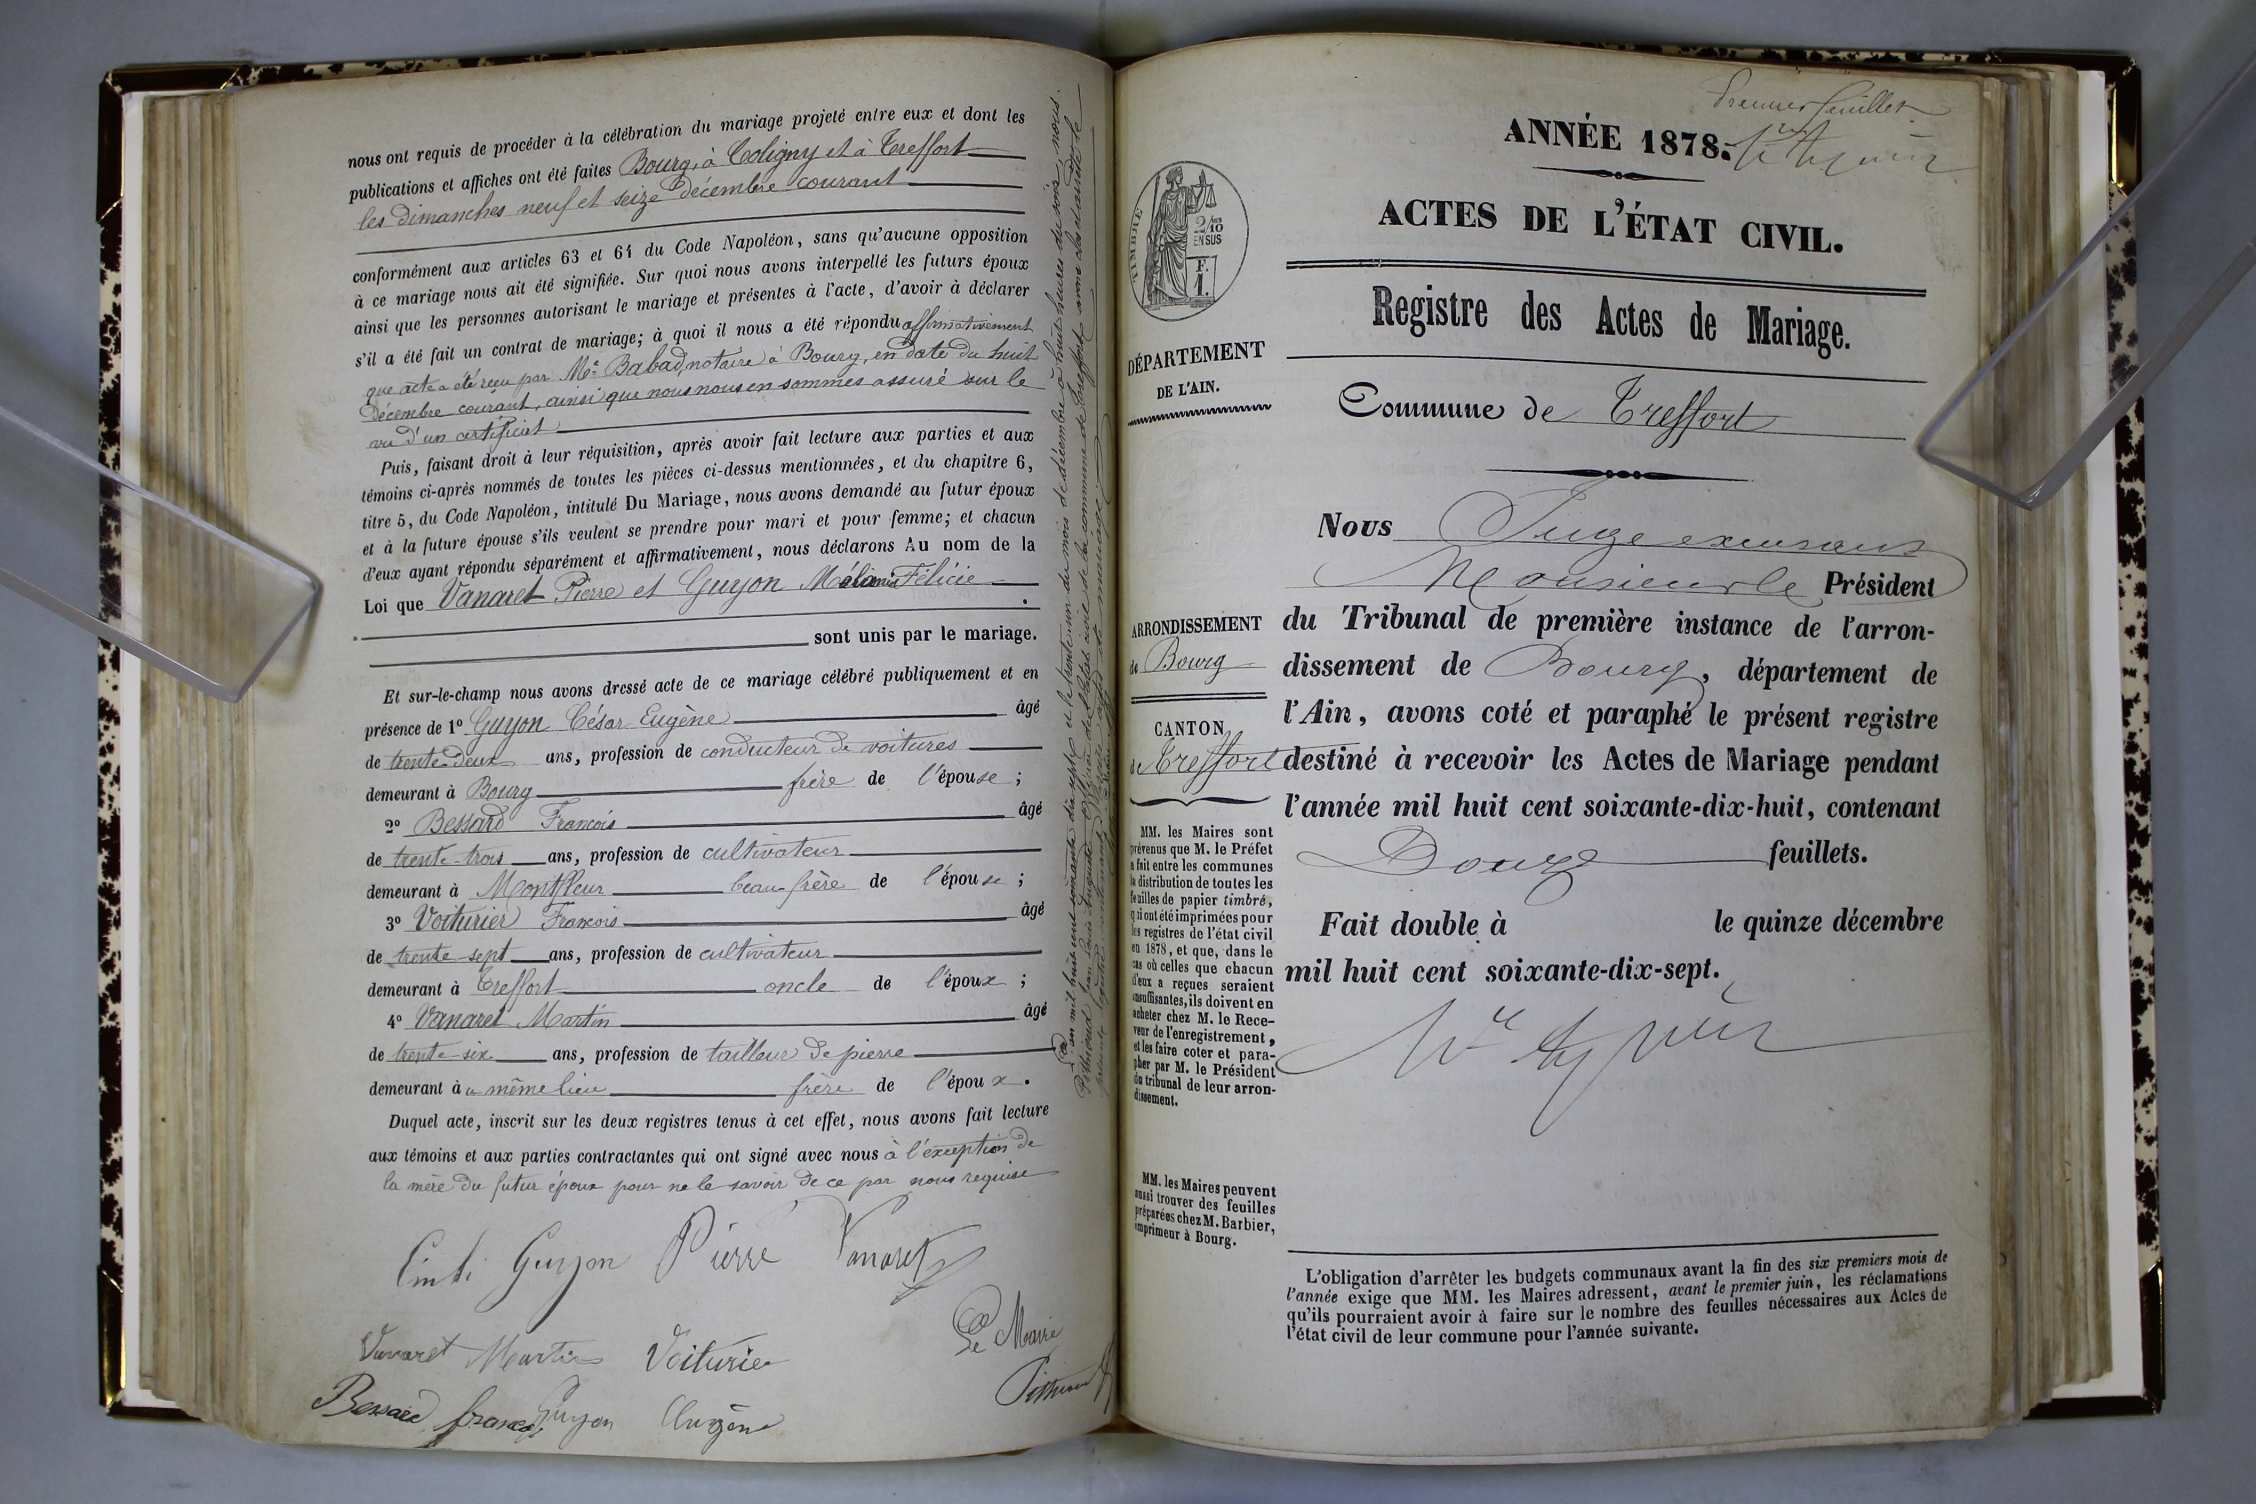 nous ont requis de procéder à la célébration du mariage projeté entre eux et dont les
publications et affiches ont été faites Bourg, à Coligny et à Treffort
les dimanches neuf et seize décembre courant
conformément aux articles 63 et 64 du Code Napoléon, sans qu'aucune opposition
à ce mariage nous ait été signifiée. Sur quoi nous avons interpellé les futurs époux
ainsi que les personnes autorisant le mariage et présentes à l'acte, d'avoir à déclarer
s'il a été fait un contrat de mariage; à quoi il nous a été répondu affirmativement
que acte a été reçu par Me Babad, notaire à Bourg, en date du huit
Décembre courant, ainsi que nous nous en sommes assuré sur le
vu d'un certificat
Puis, faisant droit à leur réquisition, après avoir fait lecture aux parties et aux
témoins ci-après nommés de toutes les pièces ci-dessus mentionnées, et du chapitre 6,
titre 5, du Code Napoléon, intitulé Du Mariage, nous avons demandé au futur époux
et à la future épouse s'ils veulent se prendre pour mari et pour femme; et chacun
d'eux ayant répondu séparément et affirmativement, nous déclarons Au nom de la
Loi que Vanaret Pierre et Guyon Mélanie Félicie
sont unis par le mariage.
Et sur-le-champ nous avons dressé acte de ce mariage célébré publiquement et en
présence de 1º Guyon César Eugène âgé
de trente-deux ans, profession de conducteur de voitures
demeurant à Bourg frère de l'épouse ;
2º Bessard François âgé
de trente-trois ans, profession de cultivateur
demeurant à Montfleur beau-frère de l'épouse ;
3º Voiturier François âgé
de trente-sept ans, profession de cultivateur
demeurant à Treffort oncle de l'époux ;
4º Vanaret Martin âgé
de trente-six ans, profession de tailleur de pierre
demeurant à u même lieu frère de l'époux.
Duquel acte, inscrit sur les deux registres tenus à cet effet, nous avons fait lecture
aux témoins et aux parties contractantes qui ont signé avec nous à l'exception de
la mère du futur époux pour ne le savoir de ce par nous requise
Guyon Pierre Vanaret
Vanaret Martin Voiturier
Le Maire
Bessard françois Guyon Eugène
Pithioud
an mil huit cent soixante dix sept et le trente-un du mois de décembre à huit heures du soir, nous.
Premier feuillet
ANNÉE 1878.
ACTES DE L'ÉTAT CIVIL.
Registre des Actes de Mariage.
TIMBRE
2/10
EN SUS
F.
1.
DÉPARTEMENT
DE L'AIN.
Commune de Treffort
Nous Juge exerçant
Monsieur le Président
du Tribunal de première instance de l'arron-
dissement de Bourg, département de
l'Ain, avons coté et paraphé le présent registre
destiné à recevoir les Actes de Mariage pendant
l'année mil huit cent soixante-dix-huit, contenant
Douze feuillets.
Fait double à le quinze décembre
mil huit cent soixante-dix-sept.
ARRONDISSEMENT
de Bourg
CANTON
de Treffort
MM. les Maires sont
prévenus que M. le Préfet
a fait entre les communes
la distribution de toutes les
feuilles de papier timbré,
qui ont été imprimées pour
les registres de l'état civil
en 1878, et que, dans le
cas où celles que chacun
d'eux a reçues seraient
insuffisantes, ils doivent en
acheter chez M. le Rece-
veur de l'enregistrement,
et les faire coter et para-
pher par M. le Président
du tribunal de leur arron-
dissement.
MM. les Maires peuvent
aussi trouver des feuilles
préparées chez M. Barbier,
imprimeur à Bourg.
L'obligation d'arrêter les budgets communaux avant la fin des six premiers mois de
l'année exige que MM. les Maires adressent, avant le premier juin, les réclamations
qu'ils pourraient avoir à faire sur le nombre des feuilles nécessaires aux Actes de
l'état civil de leur commune pour l'année suivante.